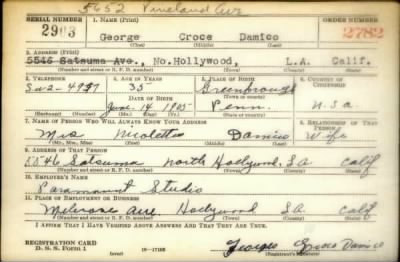 5652 Vineland Ave
SERIAL NUMBER 1. NAME (Print) ORDER NUMBER
2903 George Croce Damico 2782
(First) (Middle) (Last)
2. ADDRESS (Print)
5546 Satsuma Ave., No. Hollywood, L.A. Calif.
(Number and street or R. F. D. number) (Town) (County) (State)
3. TELEPHONE 4. AGE IN YEARS 5. PLACE OF BIRTH 6. COUNTRY OF CITIZENSHIP
Su2-4957 35 Greensbourgh
DATE OF BIRTH (Town or county)
June 14 1905 Penn. U.S.a
(Mo.) (Day) (Yr.) (State or country)
7. NAME OF PERSON WHO WILL ALWAYS KNOW YOUR ADDRESS 8. RELATIONSHIP OF THAT PERSON
Mrs Nicoletta Damico Wife
(Mr., Mrs., Miss) (First) (Middle) (Last)
9. ADDRESS OF THAT PERSON
5546 Satsuma north Hollywood, LA Calif
(Number and street or R. F. D. number) (Town) (County) (State)
10. EMPLOYER'S NAME
Paramount Studio
11. PLACE OF EMPLOYMENT OR BUSINESS
Melrose ave Hollywood LA. Calif
(Number and street or R. F. D. number) (Town) (County) (State)
I AFFIRM THAT I HAVE VERIFIED ABOVE ANSWERS AND THAT THEY ARE TRUE.
REGISTRATION CARD
D. S. S. Form 1 (over) 16—17105 George Croce Damico
(Registrant's signature)